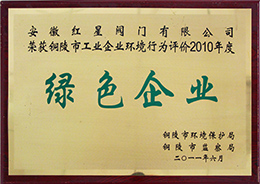 安徽红星阀门有限公司
荣获铜陵市工业企业环境行为评价2010年度
绿色企业
铜陵市环境保护局
铜陵市监察局
二〇一一年六月